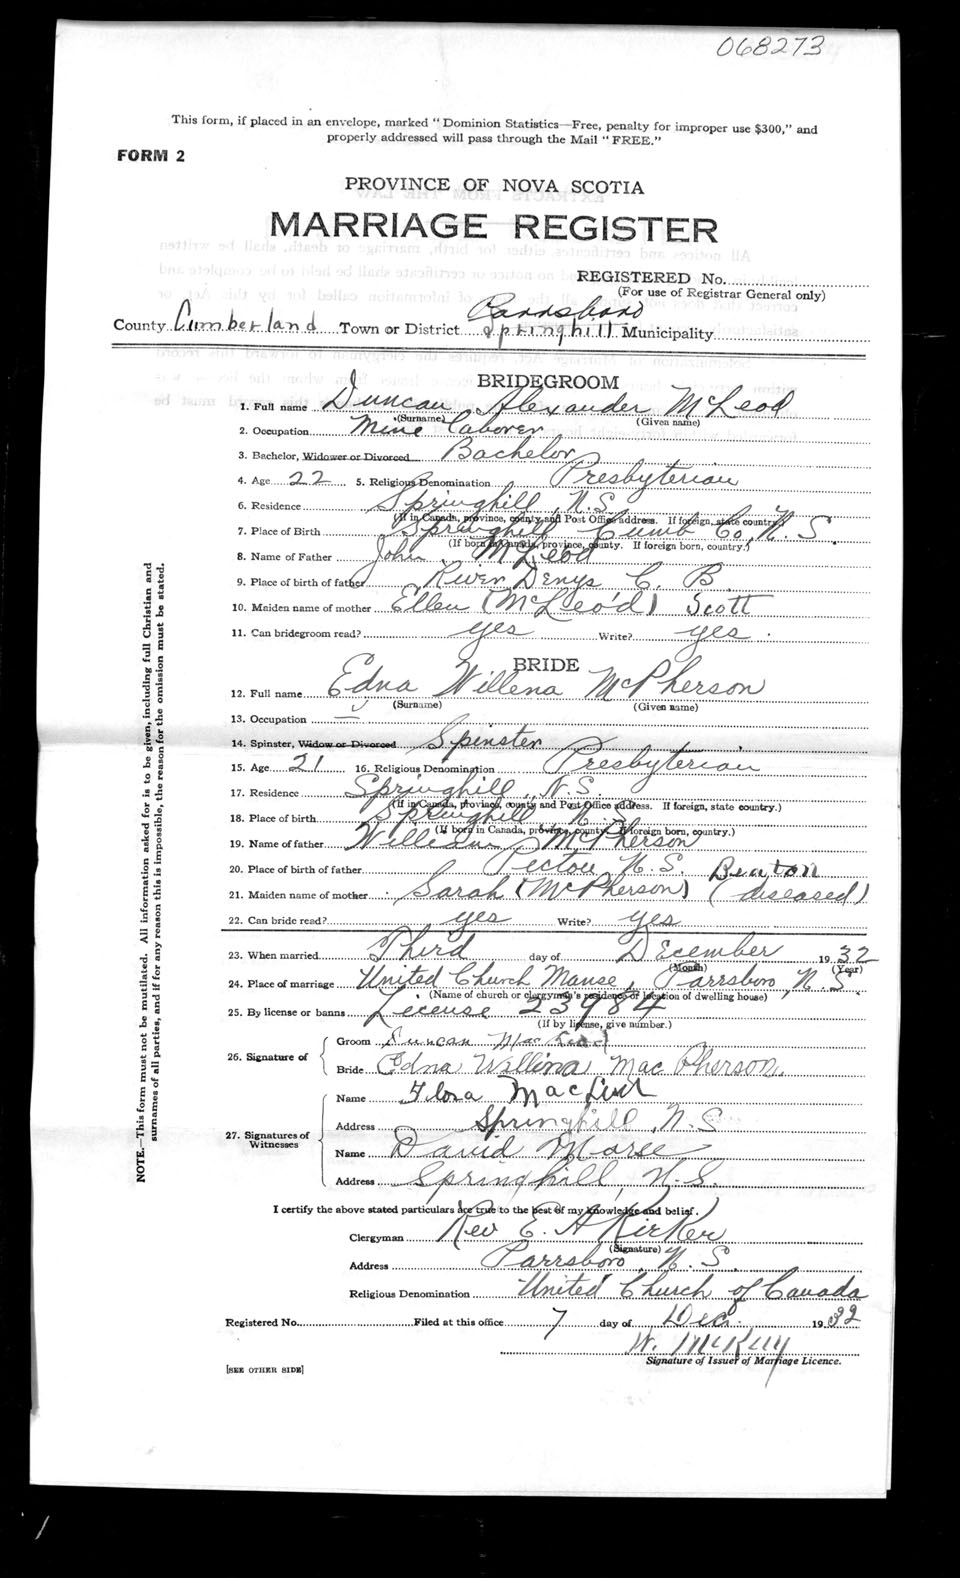 068273
This form, if placed in an envelope, marked "Dominion Statistics—Free, penalty for improper use $300," and
properly addressed will pass through the Mail "FREE."
FORM 2
PROVINCE OF NOVA SCOTIA
MARRIAGE REGISTER
REGISTERED No.
(For use of Registrar General only)
Parrsboro
County Cumberland Town or District Springhill Municipality
BRIDEGROOM
1. Full name Duncan Alexander McLeod
(Surname) (Given name)
2. Occupation Mine laborer
3. Bachelor, Widower or Divorced Bachelor
4. Age 22 5. Religious Denomination Presbyterian
6. Residence Springhill, N.S.
(If in Canada, province, county and Post Office address. If foreign, state country.)
7. Place of Birth Springhill Cumb Co, N.S.
(If born in Canada, province, county. If foreign born, country.)
8. Name of Father John McLeod
9. Place of birth of father River Denys C. B
10. Maiden name of mother Ellen (McLeod) Scott
11. Can bridegroom read? yes Write? yes.
BRIDE
12. Full name Edna Willena McPherson
(Surname) (Given name)
13. Occupation —
14. Spinster, Widow or Divorced Spinster
15. Age 21 16. Religious Denomination Presbyterian
17. Residence Springhill, N.S.
(If in Canada, province, county and Post Office address. If foreign, state country.)
18. Place of birth Springhill N.S.
(If born in Canada, province, county. If foreign born, country.)
19. Name of father William McPherson
20. Place of birth of father Pictou N.S. Benton
21. Maiden name of mother Sarah (McPherson) (diseased)
22. Can bride read? yes Write? yes
23. When married Third day of December 1932
(Month) (Year)
24. Place of marriage United Church Manse, Parrsboro, N.S.
(Name of church or clergyman's residence or location of dwelling house)
25. By license or banns License 23984
(If by license, give number.)
26. Signature of
Groom Duncan MacLeod
Bride Edna Willina MacPherson.
27. Signatures of Witnesses
Name Flora
Address Springhill, N.S
Name David
Address Springhill, N.S.
I certify the above stated particulars are true to the best of my knowledge and belief.
Clergyman Rev E. A Kirker
(Signature)
Address Parrsboro, N.S.
Religious Denomination United Church of Canada
Registered No. Filed at this office 7 day of Dec. 1932
W. McKay
Signature of Issuer of Marriage Licence.
[SEE OTHER SIDE]
NOTE.—This form must not be mutilated. All information asked for is to be given, including full Christian and
surnames of all parties, and if for any reason this is impossible, the reason for the omission must be stated.